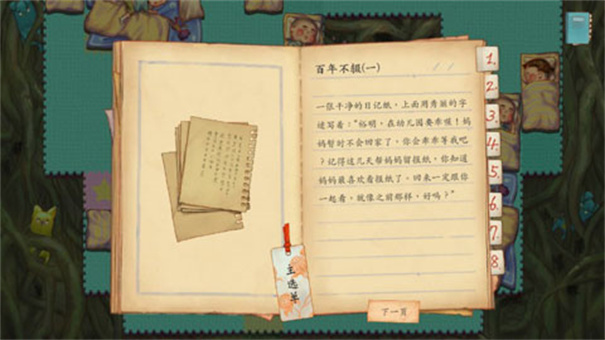 百年不辍(一)
一张干净的日记纸，上面用秀丽的字
迹写着："裕明，在幼儿园要乖喔！妈
妈暂时不会回家了，你会乖乖等我吧
？记得这几天帮妈妈留报纸，你知道
妈妈最喜欢看报纸了。回来一定跟你
一起看，就像之前那样，好吗？"
主选单
下一页
1.
2.
3.
4.
5.
6.
7.
8